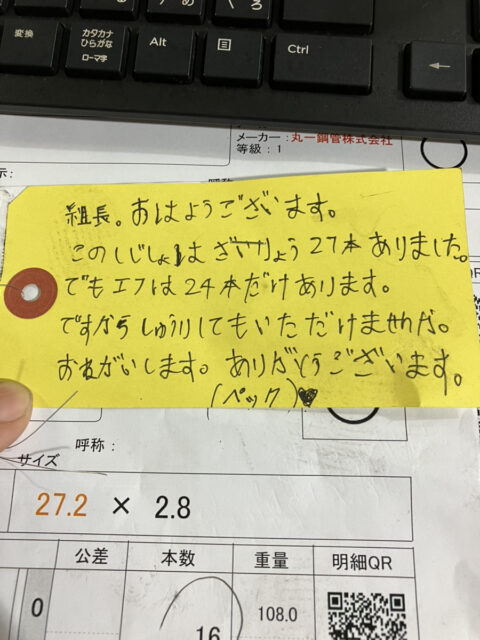 変換
カタカナ
ひらがな
ローマ字
Alt
Ctrl
メーカー：丸一鋼管株式会社
等級：1
組長。おはようございます。
このしじしょは ざいりょう 27本 ありました。
でも エフは 24本だけあります。
ですから しゅうりしてもいただけませんか。
おねがいします。 ありがとうございます。
(ペック)♥
呼称：
サイズ
27.2 × 2.8
公差 本数 重量 明細QR
0 16 108.0